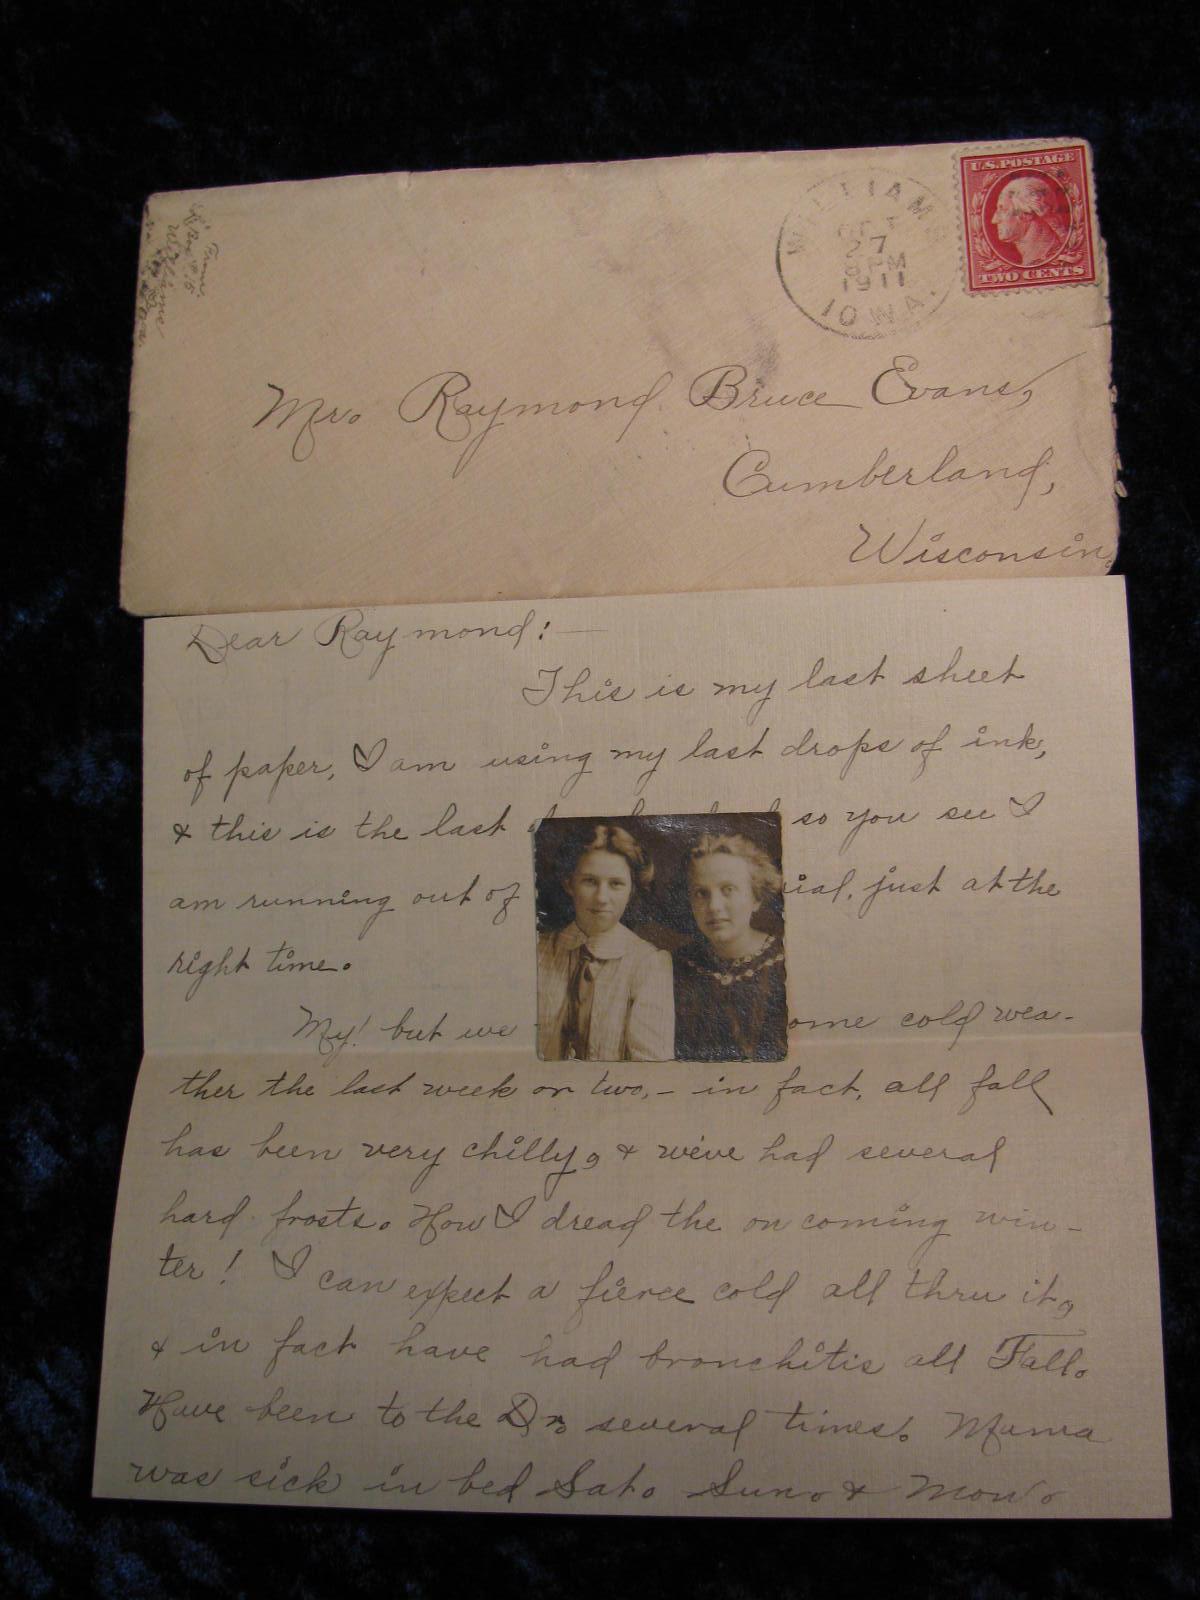 U.S. POSTAGE
TWO CENTS
WILLIAMS
27
PM
1911
IOWA.
Williams
Iowa
Mr. Raymond Bruce Evans,
Cumberland,
Wisconsin.
Dear Raymond:—
This is my last sheet
of paper, I am using my last drops of ink,
& this is the last so you see I
am running out of just at the
right time.
My! but we cold wea-
ther the last week or two, - in fact, all fall
has been very chilly, & we've had several
hard frosts. How I dread the on coming win-
ter! I can expect a fierce cold all thru it,
& in fact have had bronchitis all Fall.
Have been to the Dr. several times. Mama
was sick in bed Sat. Sun. & Mon.